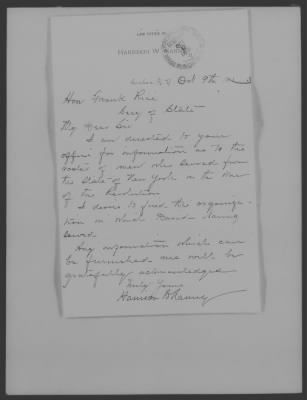 LAW OFFICE OF
HARRISON W.
Oct 9th
Hon Frank Rice
Secy of State
My Dear Sir
I am directed to your
office for information as to the
roster of men who served from
the State of New York in the War
of the Revolution
I desire to find the organiza-
tion in which
served.
Any information which can
be furnished me will be
gratefully acknowledged
Truly Yours